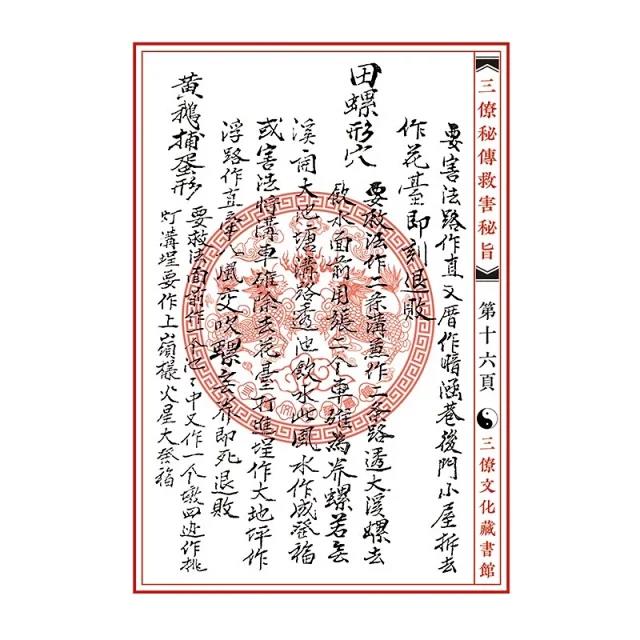 三僚秘傳救害秘旨
第十六頁
三僚文化藏書館
要害法路作直又厝作暗涵巷後門小屋拆去
作花臺即刻退敗
田螺形穴
要救法作二条溝兼作二条路透大溪螺去
飲水面前用張二个車碓為养螺若無
溪前大地塘溝路透池飲水此風水作成發福
或害法将溝車碓除去花臺打進埕作大地坪作
浮路作直 風交吹螺無养即死退敗
黄鵝捕蛋形
要救法面前作一个池池中又作一个墩四边作桃
灯溝埕要作上嶺樣火星大發福